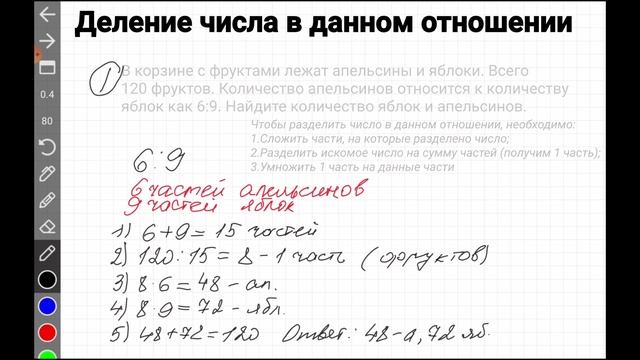 Деление числа в данном отношении
1
В корзине с фруктами лежат апельсины и яблоки. Всего
120 фруктов. Количество апельсинов относится к количеству
яблок как 6:9. Найдите количество яблок и апельсинов.
Чтобы разделить число в данном отношении, необходимо:
1.Сложить части, на которые разделено число;
2.Разделить искомое число на сумму частей (получим 1 часть);
3.Умножить 1 часть на данные части
0.4
80
6:9
6 частей апельсинов
9 частей яблок
1) 6+9=15 частей
2) 120:15=8-1 часть (фруктов)
3) 8·6=48-ап.
4) 8·9=72-ябл.
5) 48+72=120 Ответ: 48-а, 72 яб.